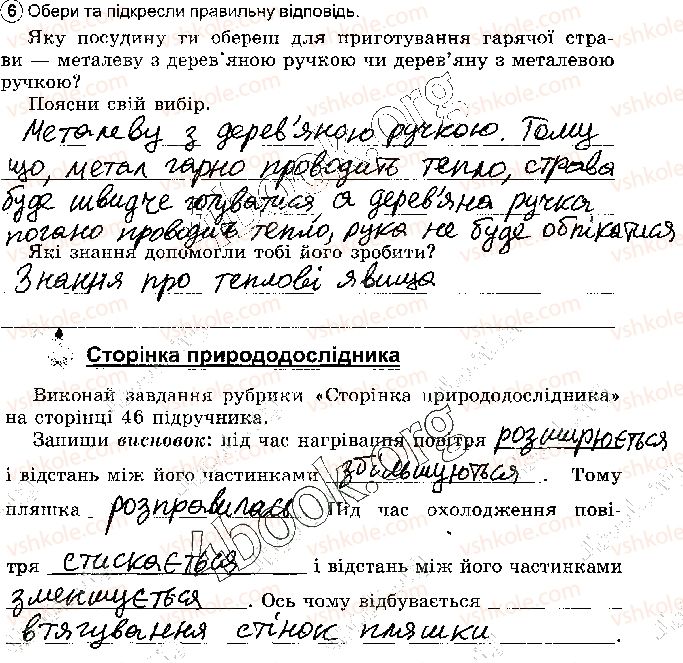 6 Обери та підкресли правильну відповідь.
Яку посудину ти обереш для приготування гарячої стра-
ви — металеву з дерев'яною ручкою чи дерев'яну з металевою
ручкою?
Поясни свій вибір.
Металеву з дерев'яною ручкою. Тому
що, метал гарно проводить тепло, страва
буде швидче готуватися а дерев'яна ручка
погано проводить тепло, рука не буде обпікатися
Які знання допомогли тобі його зробити?
Знання про теплові явища
Сторінка природодослідника
Виконай завдання рубрики «Сторінка природодослідника»
на сторінці 46 підручника.
Запиши висновок: під час нагрівання повітря розширюється
і відстань між його частинками збільшуються. Тому
пляшка розправилась. Під час охолодження пові-
тря стискається і відстань між його частинками
зменшується. Ось чому відбувається
втягування стінок пляшки.